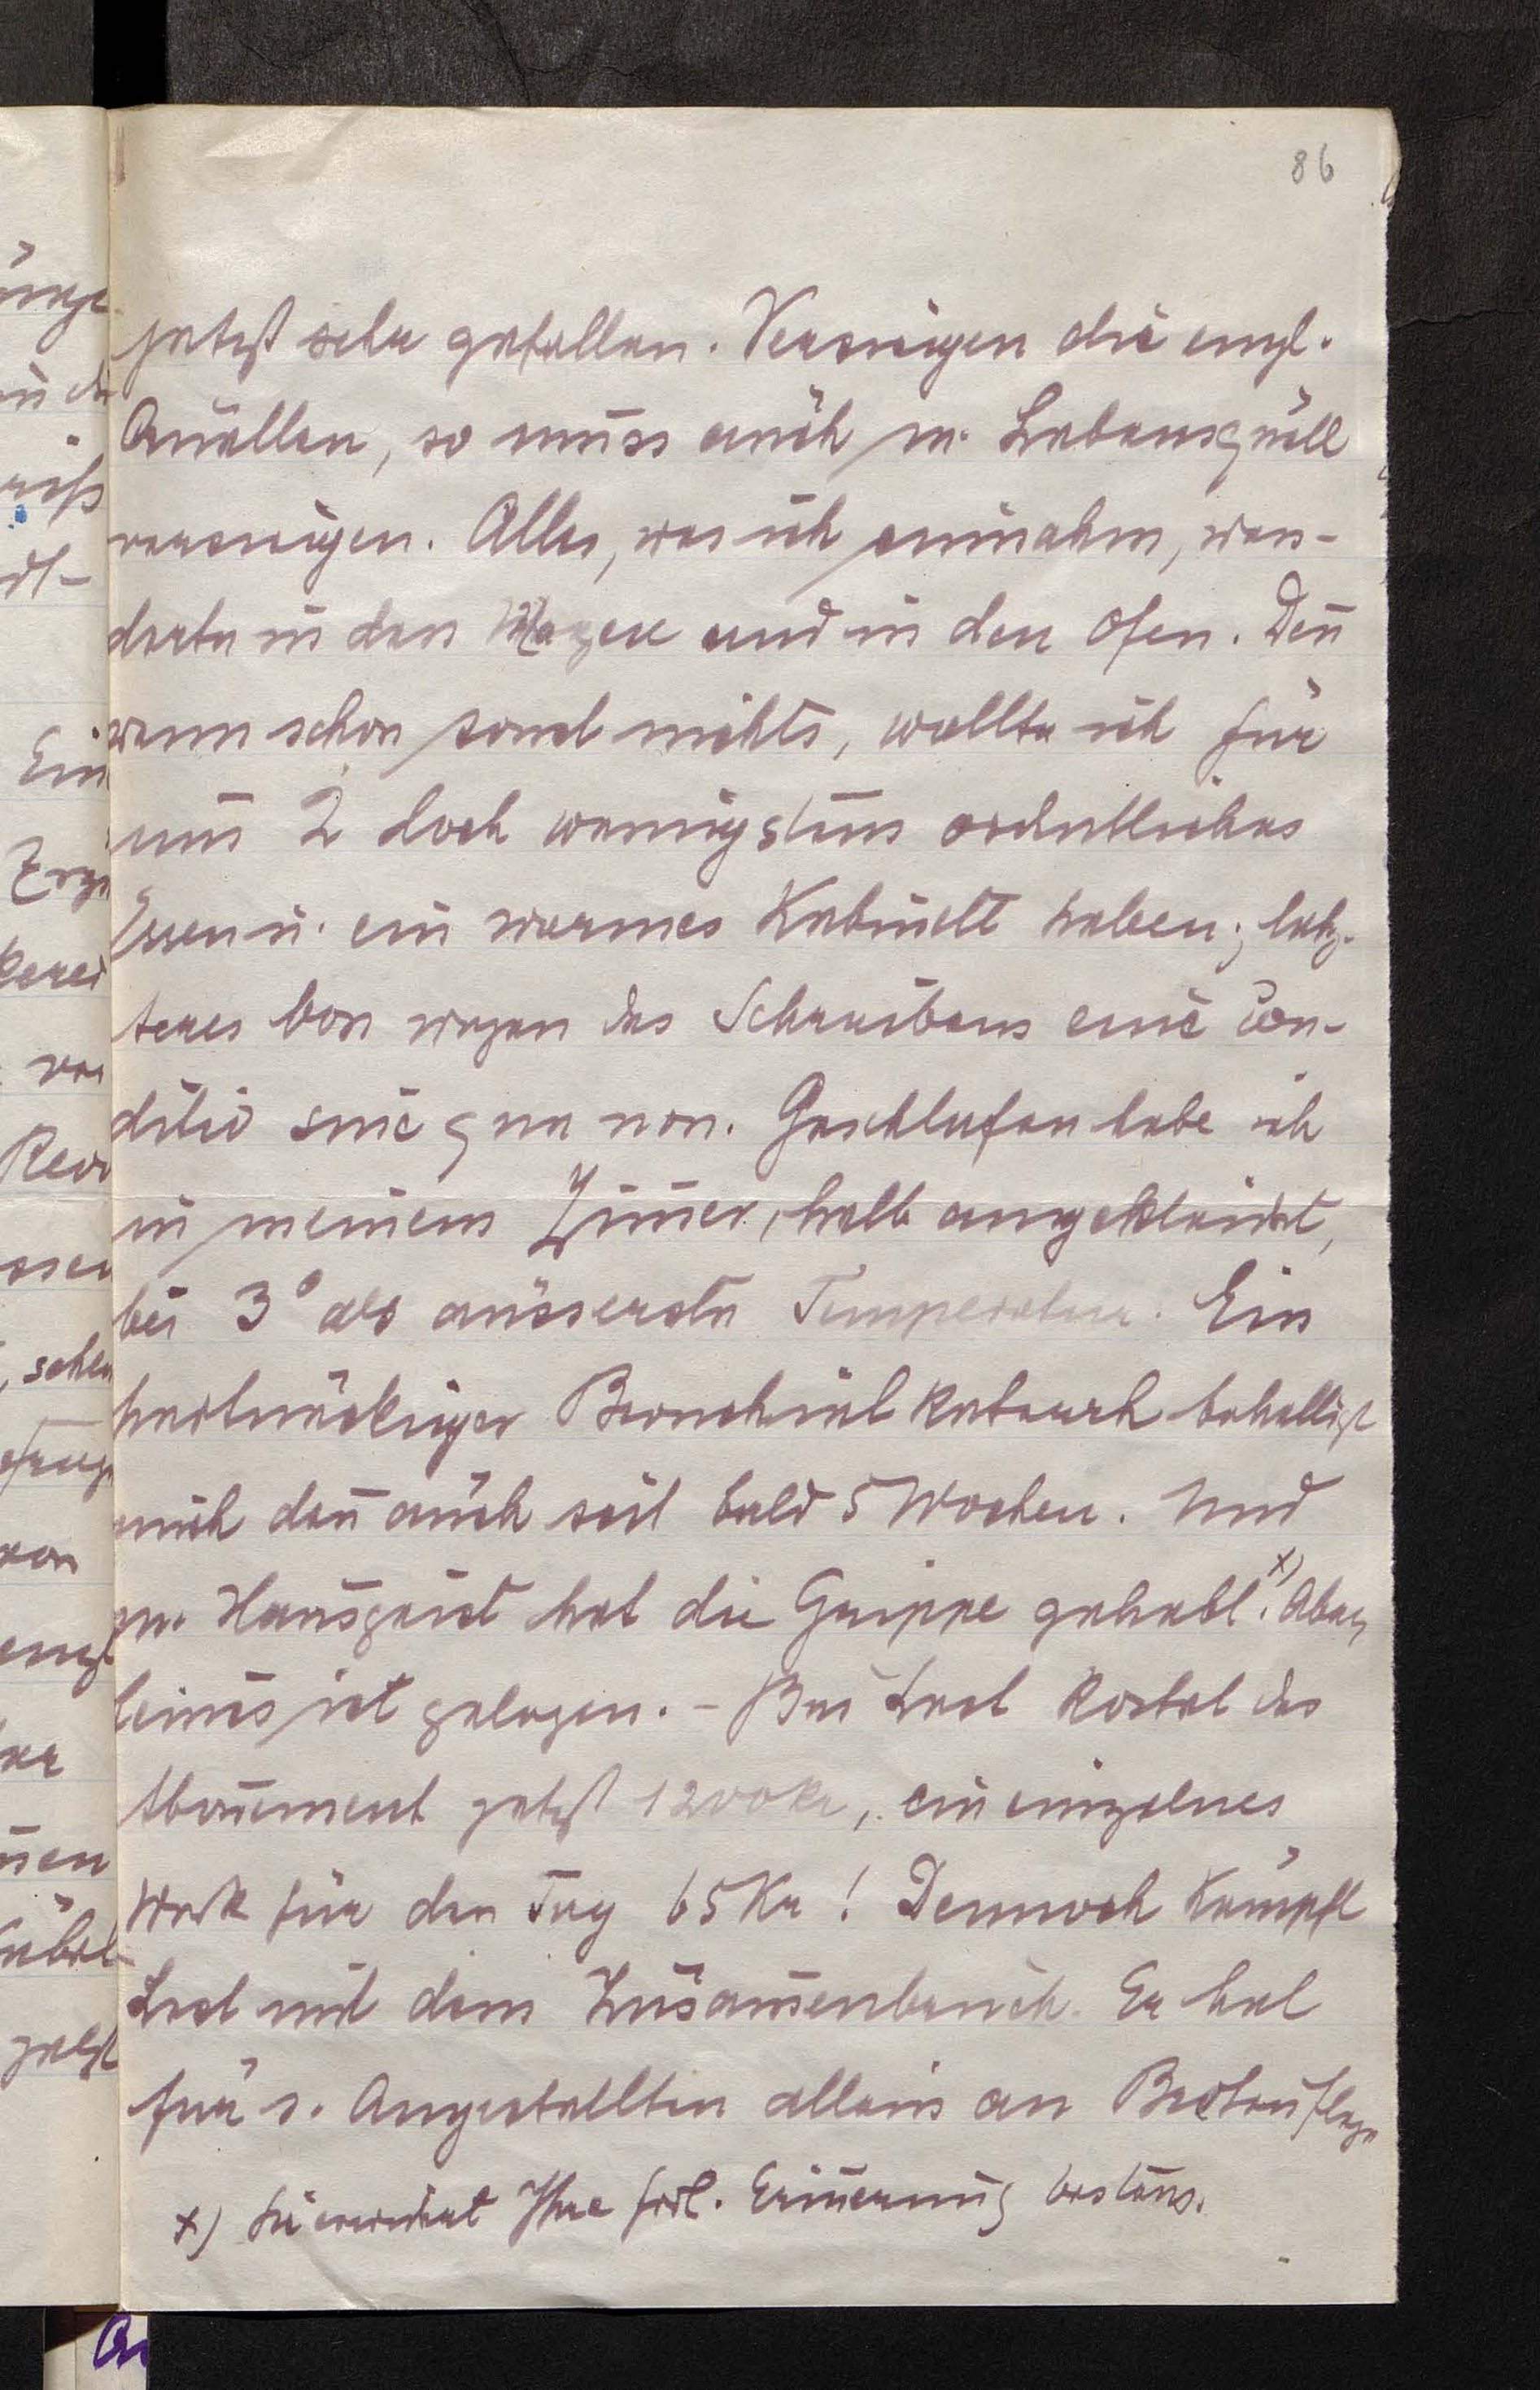 86
jetzt sehr gefallen. Versiegen die engl.
Quellen, so muss auch m. Lebensquell
versiegen. Alles, was ich einnahm, wan-
derte in den Magen und in den Ofen. Deñ
wenn schon sonst nichts, wollte ich für
uns 2 doch wenigstens ordentliches
Essen u. ein warmes Kabinett haben; letz-
teres von wegen des Schreibens eine con-
ditio sine qua non. Geschlafen habe ich
in meinem Zim̄er, halb angekleidet,
bei 3° als äusserste Temperatur. Ein
hartnäckiger Bronchialkatarrh behelligt
mich deñ auch seit bald 5 Wochen. Und
m. Hausgeist hat die Grippe gehabt.x) Aber
keines ist gelegen. – Bei Last kostet das
Aboñement jetzt 1200 Kr, ein einzelnes
Werk für den Tag 65 Kr! Dennoch kämpft
Last mit dem Zusam̄enbruch. Er hat
für s. Angestellten allein an
x) Sie erwidert Ihre frdl. Eriñerung bestens.